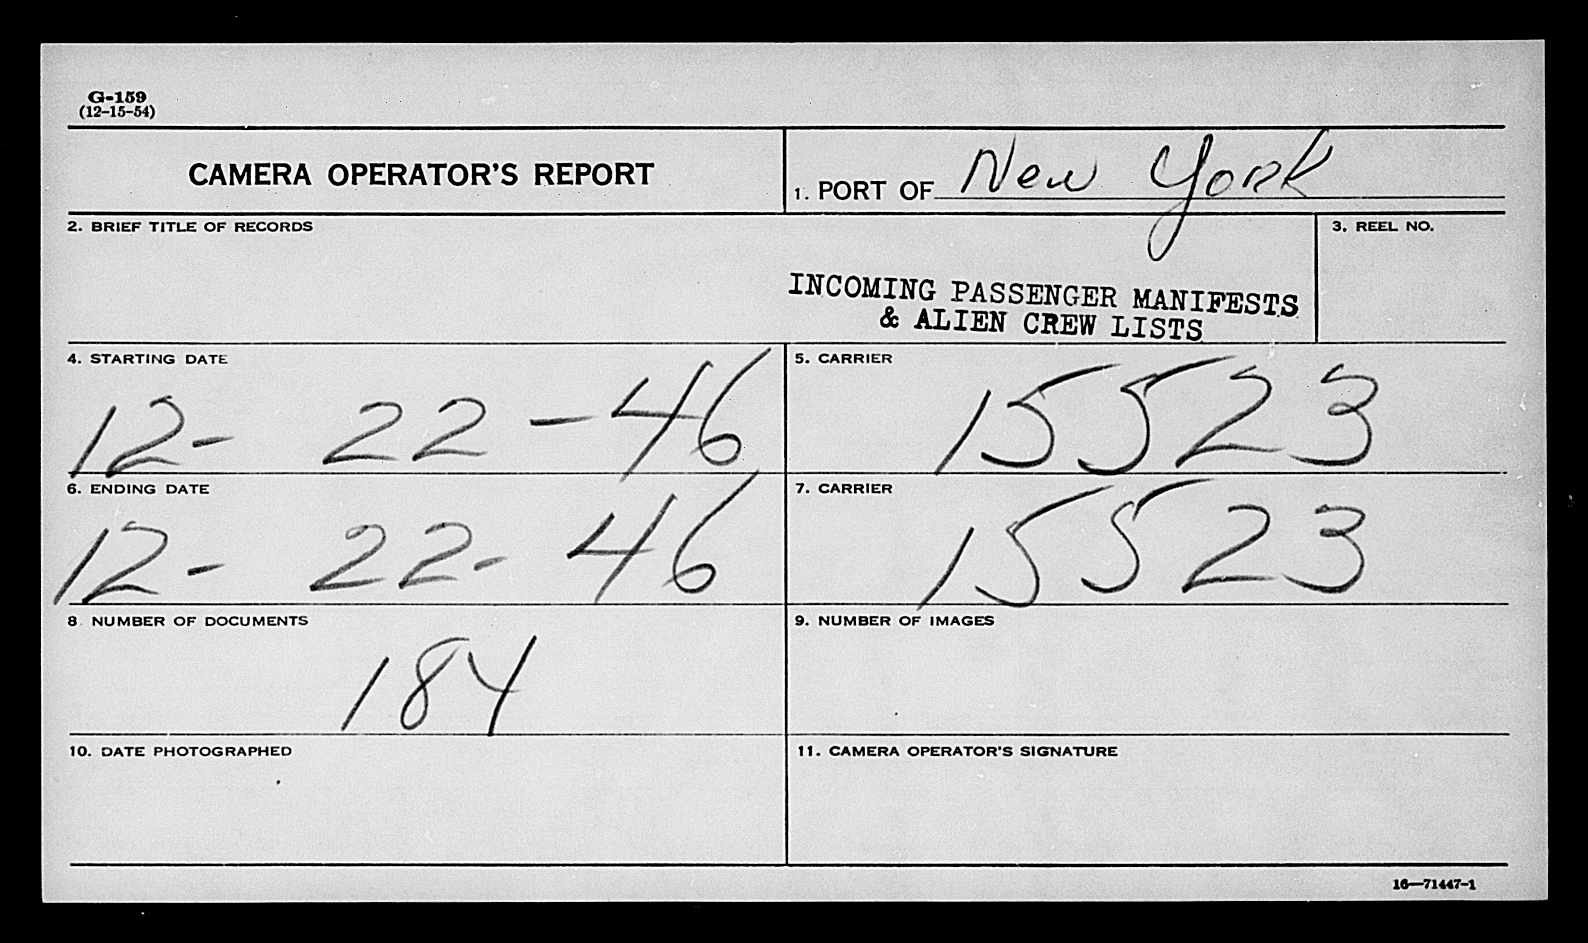 G-159
(12-15-54)
CAMERA OPERATOR'S REPORT
1. PORT OF New York
2. BRIEF TITLE OF RECORDS
INCOMING PASSENGER MANIFESTS
& ALIEN CREW LISTS
3. REEL NO.
4. STARTING DATE
12- 22-46
5. CARRIER
15523
6. ENDING DATE
12- 22-46
7. CARRIER
15523
8 NUMBER OF DOCUMENTS
184
9. NUMBER OF IMAGES
10. DATE PHOTOGRAPHED
11. CAMERA OPERATOR'S SIGNATURE
16—71447-1